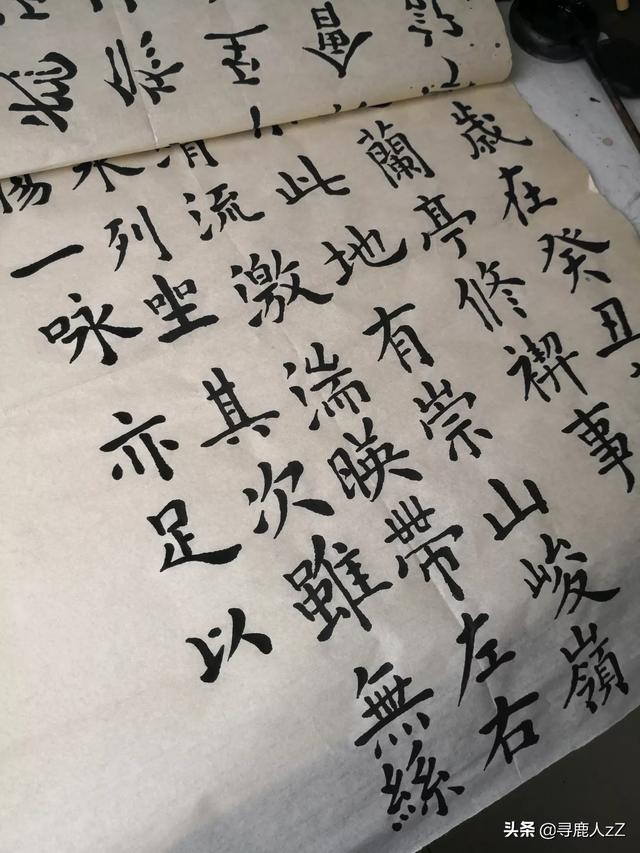 歲在癸丑
蘭亭修禊事
此地有崇山峻嶺
清流激湍暎帶左右
列坐其次雖無絲
一詠亦足以
頭条 @寻鹿人zZ